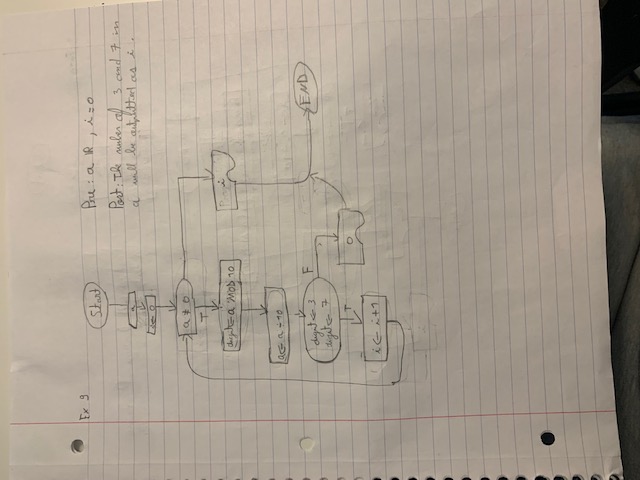 Ex 9
Start
Pre: a ℝ, i=0
Post: The number of 3 and 7 in
a will be outputted as i.
a
i ← 0
a ≠ 0
T
digit ← a MOD 10
i
a ← a ÷ 10
digit ← 3
digit ← 7
F
END
T
0
i ← i+1